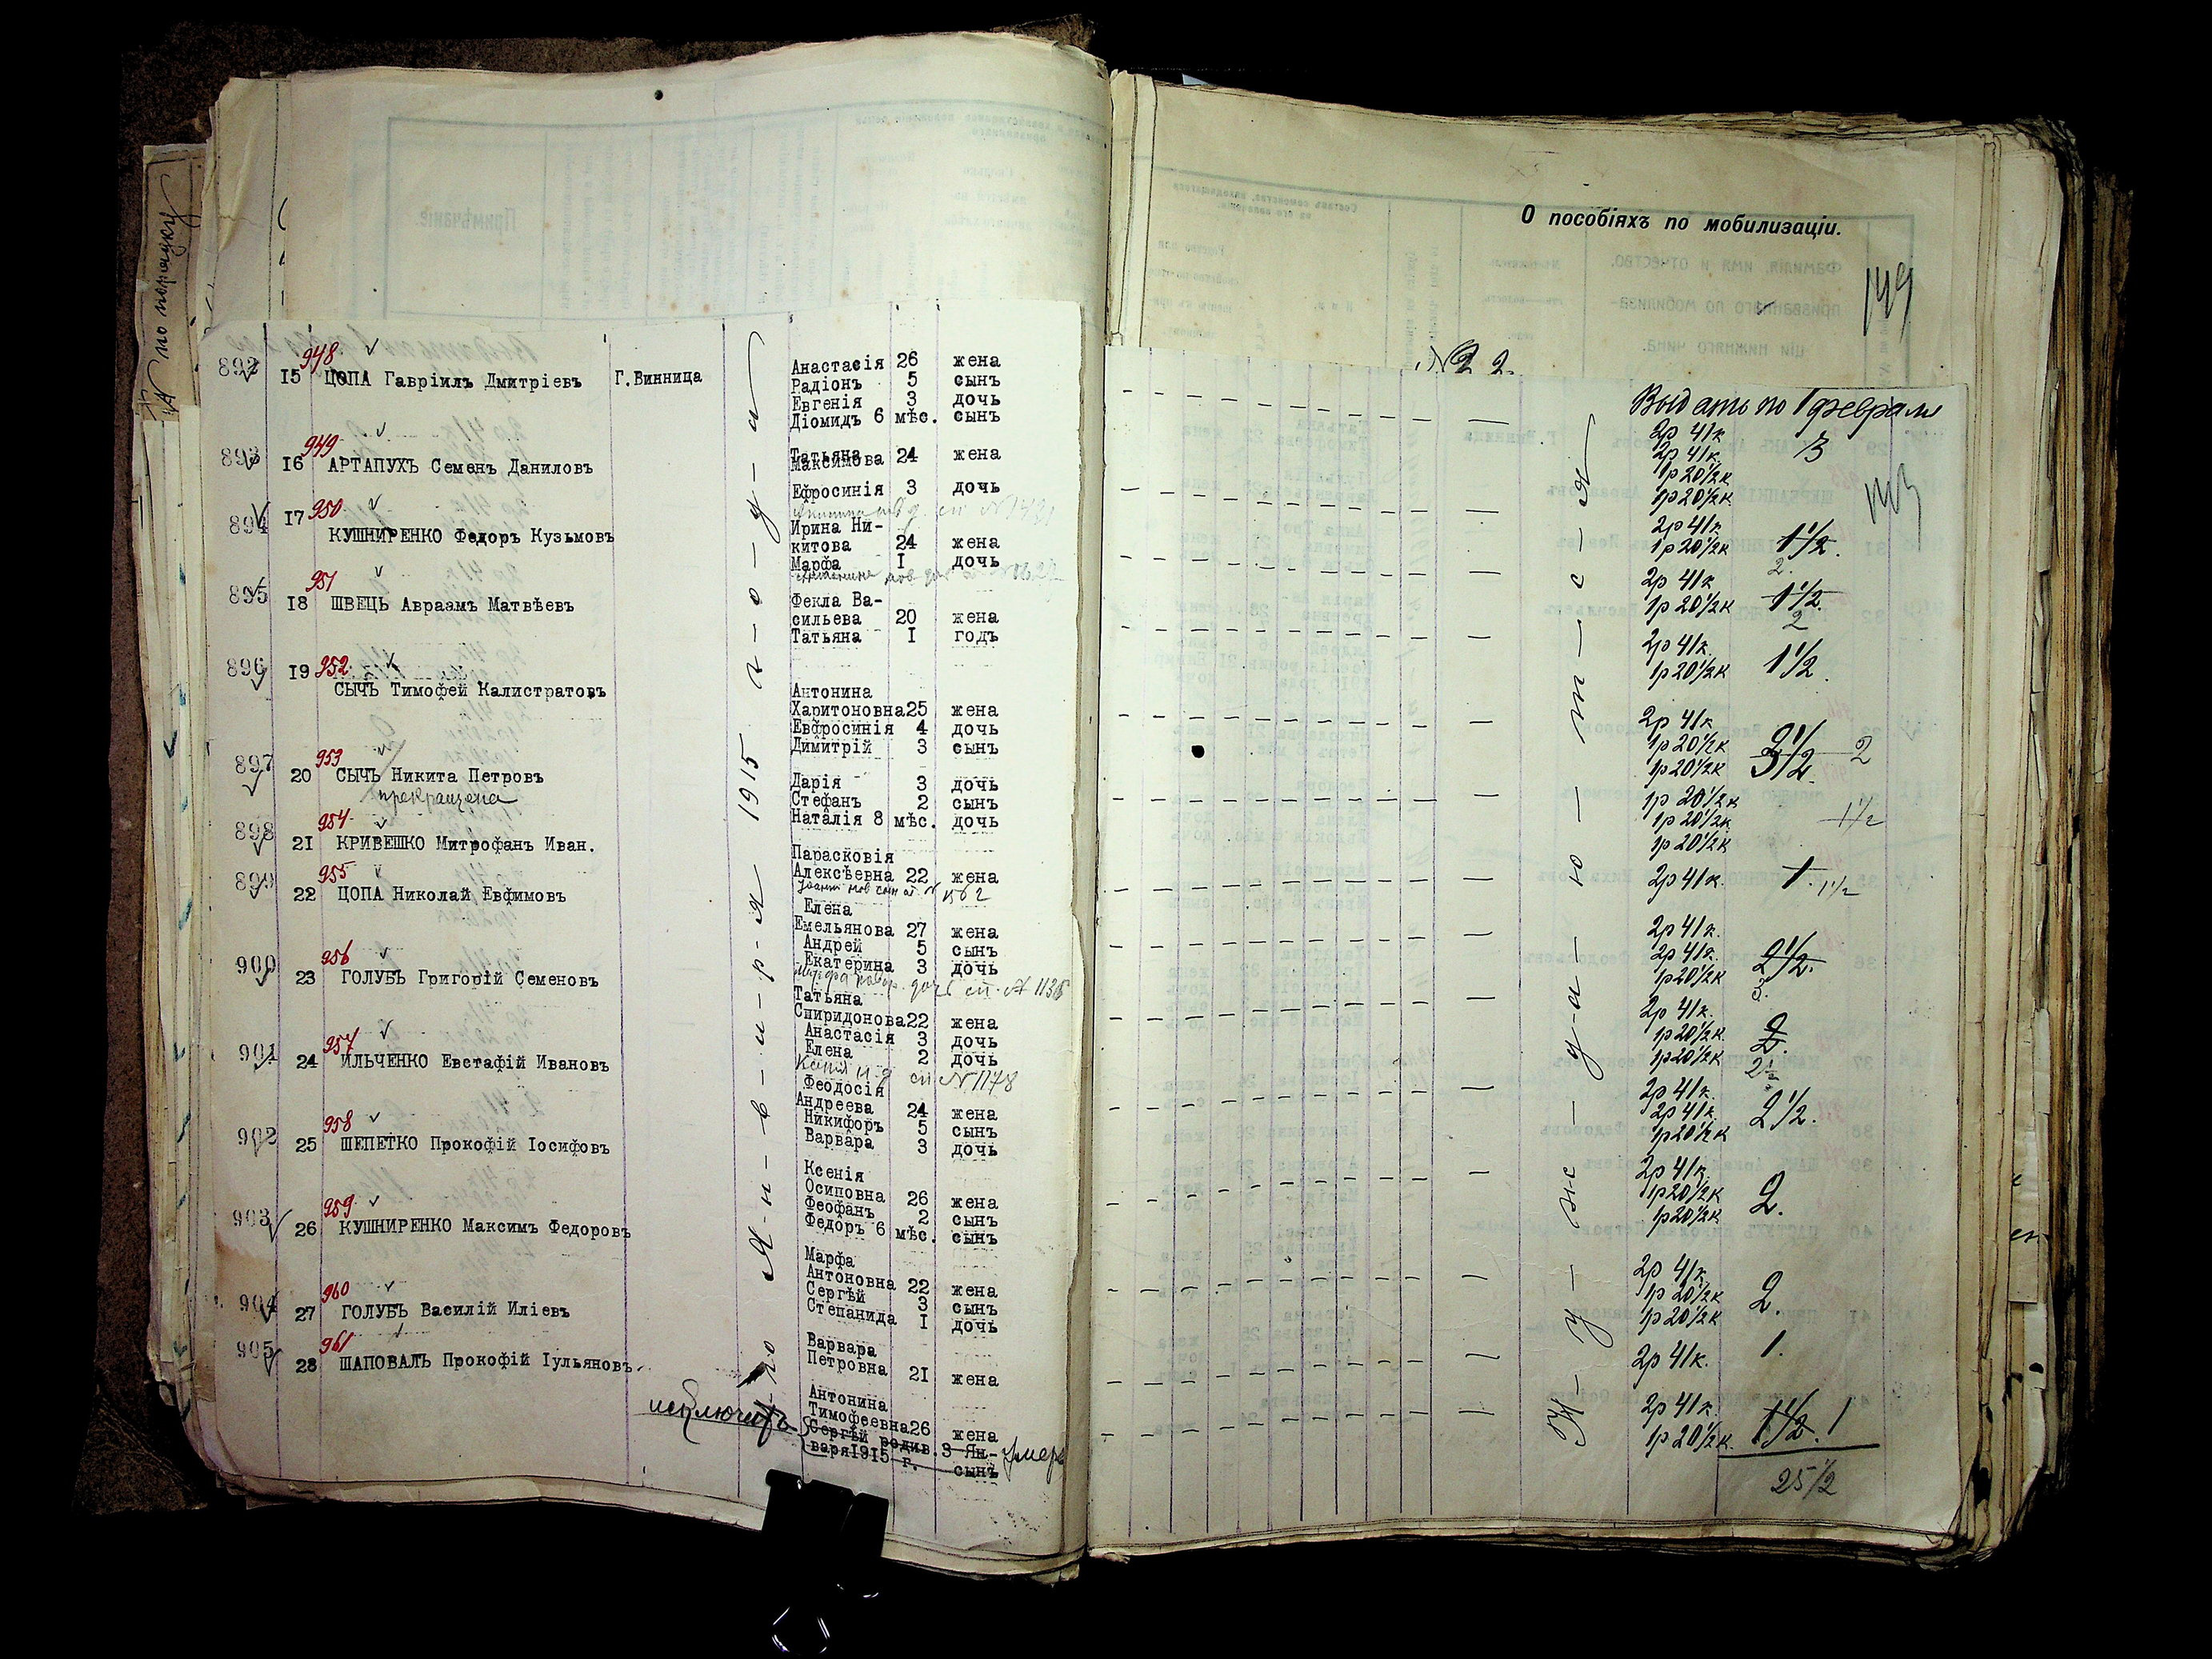 № по порядку
892 15 948 ЦОПА Гавріилъ Дмитріевъ Г.Винница
Анастасія 26 жена
Радіонъ 5 сынъ
Евгенія 3 дочь
Діомидъ 6 мѣс. сынъ
893 16 949 АРТАПУХЪ Семенъ Даниловъ
Татьяна
Максимова 24 жена
Ефросинія 3 дочь
894 17 950 КУШНИРЕНКО Федоръ Кузьмовъ
Ирина Ни-
китова 24 жена
Марфа I дочь
895 18 951 ШВЕЦЬ Авраамъ Матвѣевъ
Фекла Ва-
сильева 20 жена
Татьяна I годъ
896 19 952 СЫЧЪ Тимофей Калистратовъ
Антонина
Харитоновна 25 жена
Евфросинія 4 дочь
Димитрій 3 сынъ
897 20 953 СЫЧЪ Никита Петровъ
прекращена
Дарія 3 дочь
Стефанъ 2 сынъ
Наталія 8 мѣс. дочь
898 21 954 КРИВЕШКО Митрофанъ Иван.
Парасковія
Алексѣевна 22 жена
899 22 955 ЦОПА Николай Евфимовъ
Елена
Емельянова 27 жена
Андрей 5 сынъ
Екатерина 3 дочь
900 23 956 ГОЛУБЪ Григорій Семеновъ
Татьяна
Спиридонова 22 жена
Анастасія 3 дочь
Елена 2 дочь
сп № 1178
901 24 957 ИЛЬЧЕНКО Евстафій Ивановъ
Феодосія
Андреева 24 жена
Никифоръ 5 сынъ
Варвара 3 дочь
902 25 958 ШЕПЕТКО Прокофій Іосифовъ
Ксенія
Осиповна 26 жена
Феофанъ 2 сынъ
Федоръ 6 мѣс. сынъ
903 26 959 КУШНИРЕНКО Максимъ Федоровъ
Марфа
Антоновна 22 жена
Сергѣй 3 сынъ
Степанида I дочь
904 27 960 ГОЛУБЪ Василій Иліевъ
Варвара
Петровна 21 жена
905 28 961 ШАПОВАЛЪ Прокофій Іульяновъ
Антонина
Тимофеевна 26 жена
исключить Сергѣй родив. 3 Ян- умеръ
варя 1915 г. сынъ
1-го Я-н-в-а-р-я 1915 г-о-д-а
О пособіяхъ по мобилизаціи.
149
№ 22.
Выдать по 1 февраля
2р 41к
2р 41к. 3
1р 20½к
1р 20½к.
2р 41к
1р 20½к 1½.
2.
2р 41к
1р 20½к 1½.
2
2р 41к.
1р 20½к 1½.
2р 41к
1р 20½к 2
1р 20½к
1р 20½к
1р 20½к 1½
1р 20½к
2р 41к. 1. 1½
2р 41к.
2р 41к. 2½.
1р 20½к 3.
2р 41к.
1р 20½к. 2.
1р 20½к 2½
2р 41к.
2р 41к. 2½.
1р 20½к
2р 41к
1р 20½к 2.
1р 20½к
2р 41к
1р 20½к 2.
1р 20½к
2р 41к. 1.
2р 41к.
1р 20½к. 1½. 1
25½
Н-у-ж-д-а-ю-т-с-я